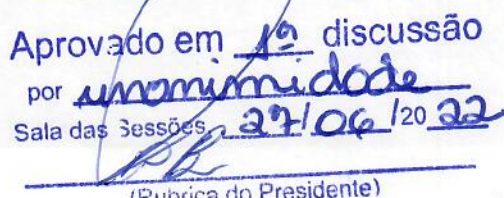 Aprovado em 1ª discussão
por unanimidade
Sala das Sessões, 27/06/2022
(Rubrica do Presidente)